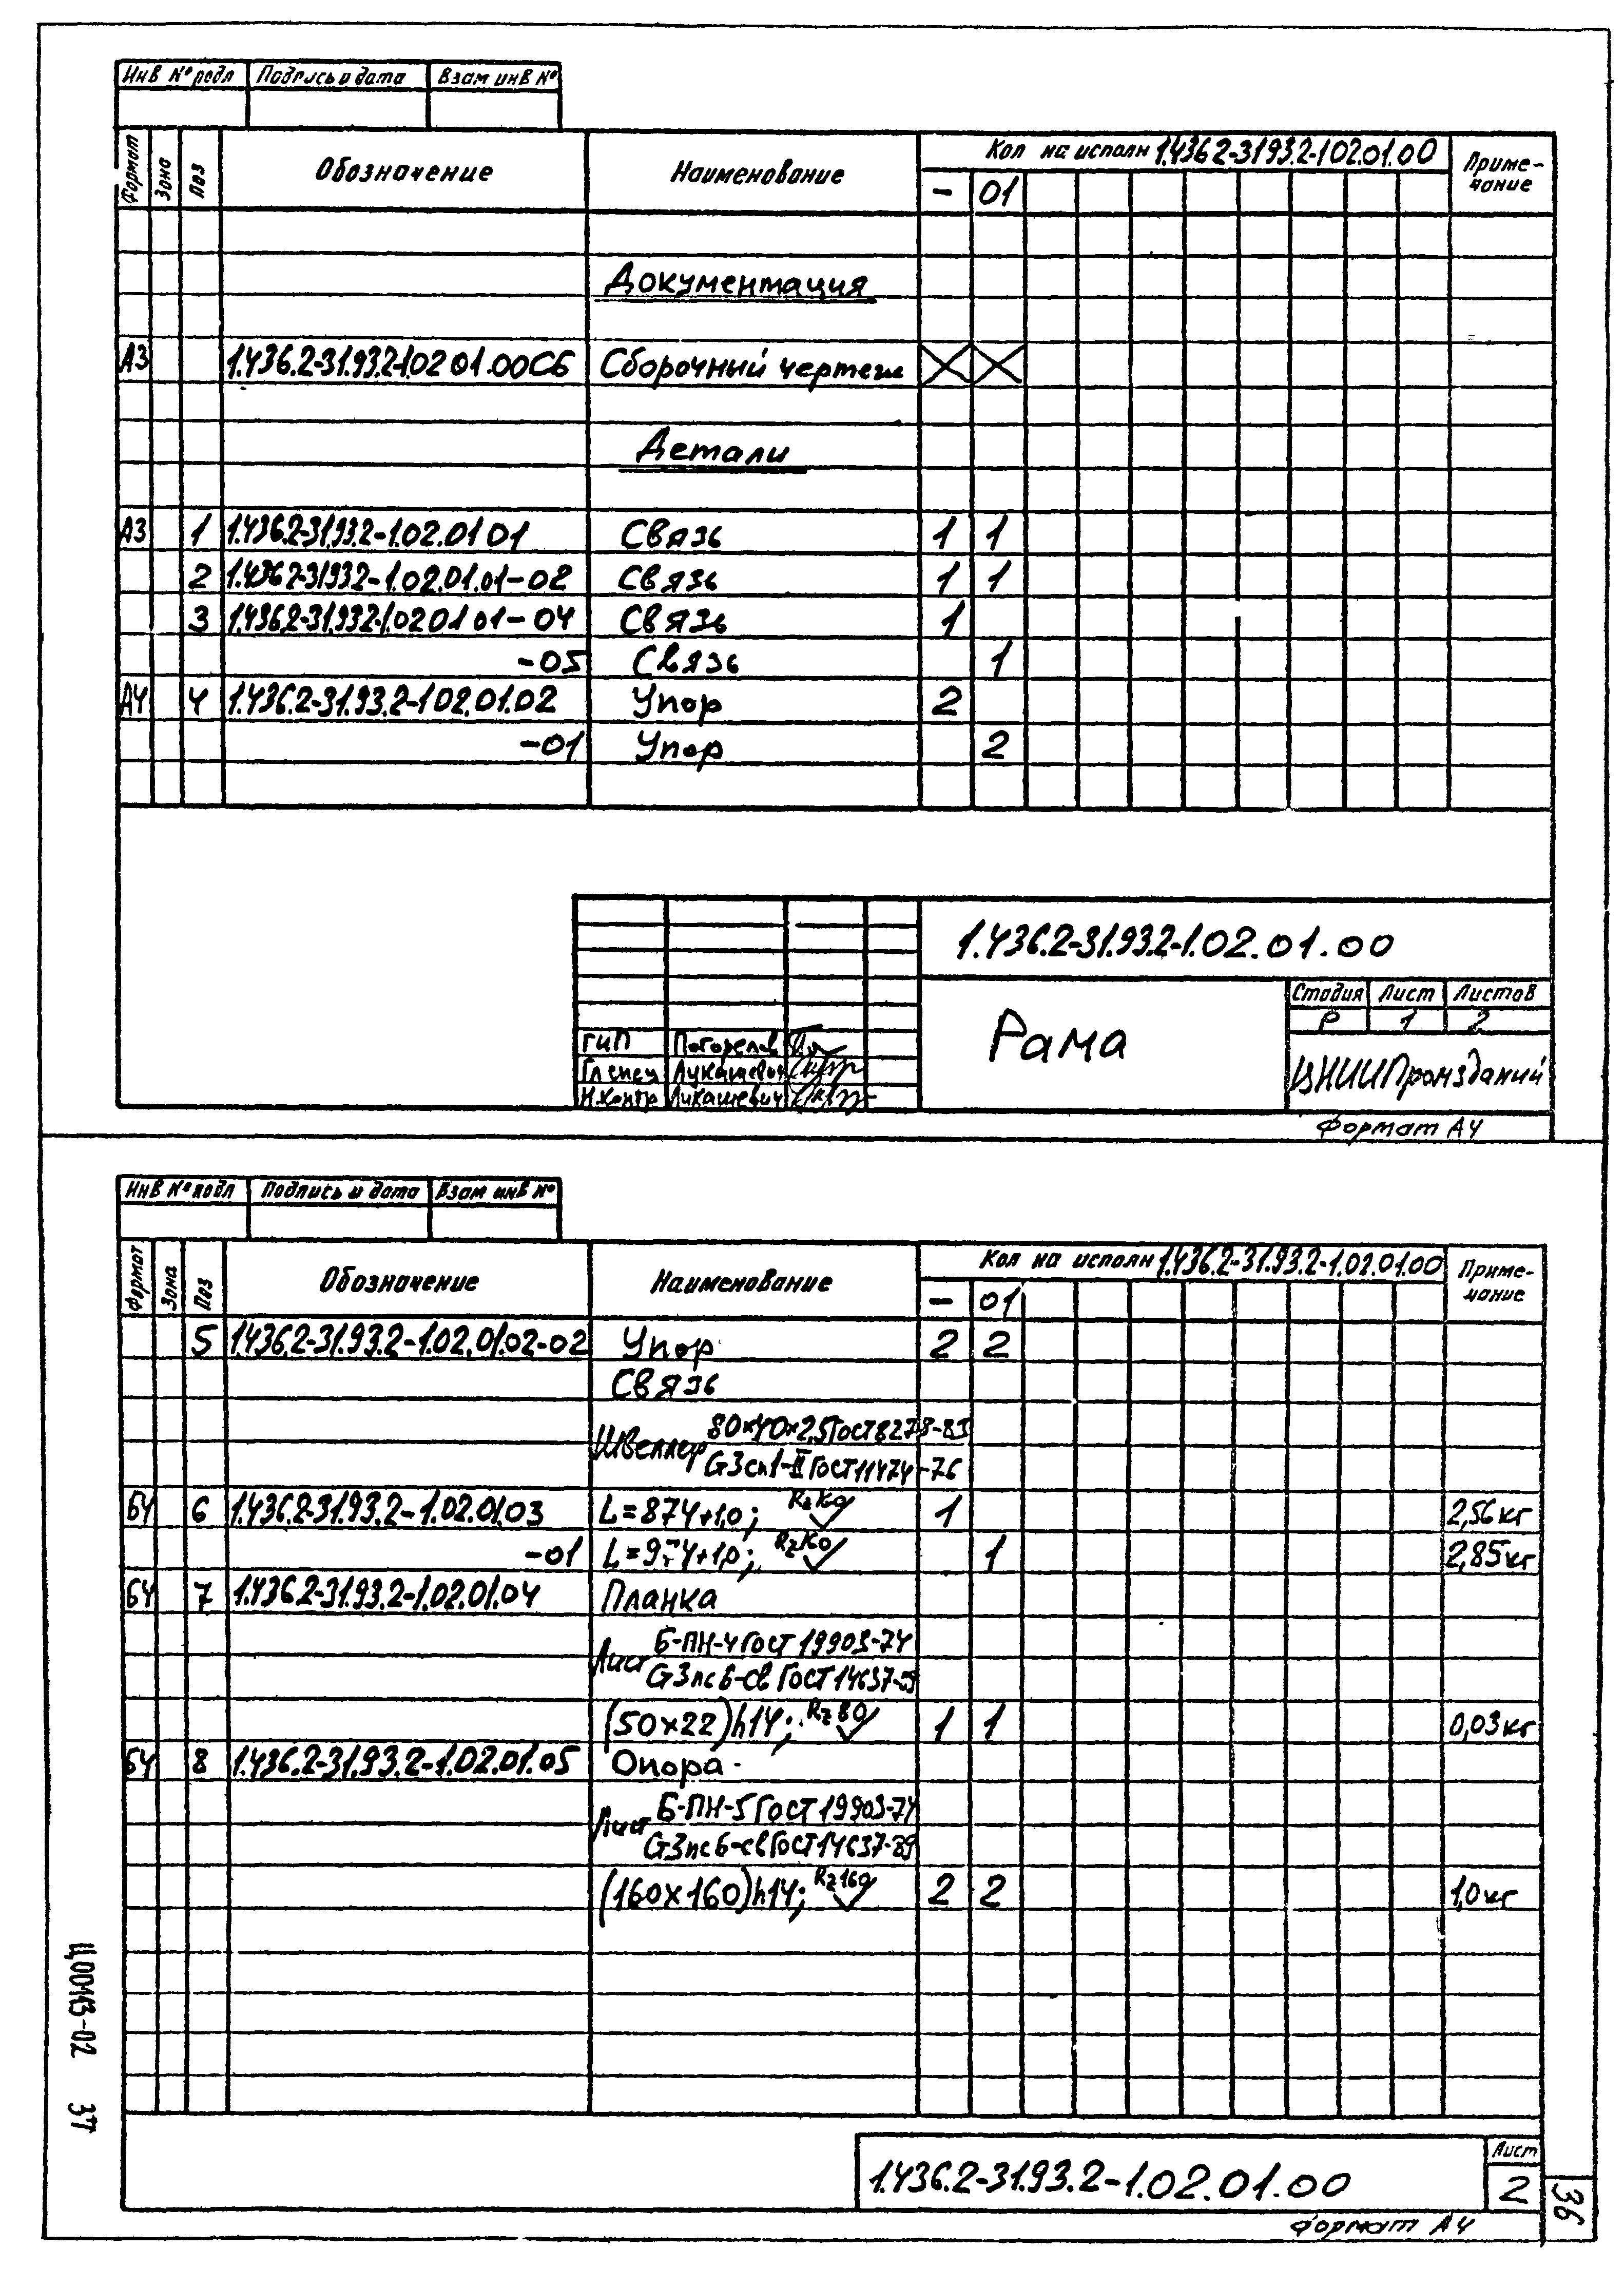 Инв № подл Подпись и дата Взам инв №
Формат Зона Поз Обозначение Наименование Кол на исполн 1.436.2-31.93.2-1.02.01.00 Приме-
чание
- 01
Документация
А3 1.436.2-31.93.2-1.02 01.00СБ Сборочный чертеж
Детали
А3 1 1.436.2-31.93.2-1.02.01 01 Связь 1 1
2 1.436.2-31.93.2-1.02.01.01-02 Связь 1 1
3 1.436.2-31.93.2-1.02 01 01-04 Связь 1
-05 Связь 1
А4 4 1.436.2-31.93.2-1.02.01.02 Упор 2
-01 Упор 2
1.436.2-31.93.2-1.02.01.00
Рама
Стадия Лист Листов
Р 1 2
ЦНИИПромзданий
ГИП Погорелов
Гл спец Лукашевич
Н.контр Лукашевич
Формат А4
Инв № подл Подпись и дата Взам инв №
Формат Зона Поз Обозначение Наименование Кол на исполн 1.436.2-31.93.2-1.02.01.00 Приме-
чание
- 01
5 1.436.2-31.93.2-1.02.01.02-02 Упор 2 2
Связь
Швеллер 80×40×2,5 Гост 8278-83
Ст3сп1-II Гост 11474-76
Б4 6 1.436.2-31.93.2-1.02.01.03 L=874±1,0; 1 2,56 кг
-01 L=974±1,0; 1 2,85 кг
Б4 7 1.436.2-31.93.2-1.02.01.04 Планка
Лист Б-ПН-4 Гост 19903-74
Ст3пс6-св Гост 14637-89
(50×22)h14; Rz 80 1 1 0,03 кг
Б4 8 1.436.2-31.93.2-1.02.01.05 Опора
Лист Б-ПН-5 Гост 19903-74
Ст3пс6-св Гост 14637-89
(160×160)h14; Rz 160 2 2 1,0 кг
Ц00143-02 37
1.436.2-31.93.2-1.02.01.00
Лист
2
36
Формат А4